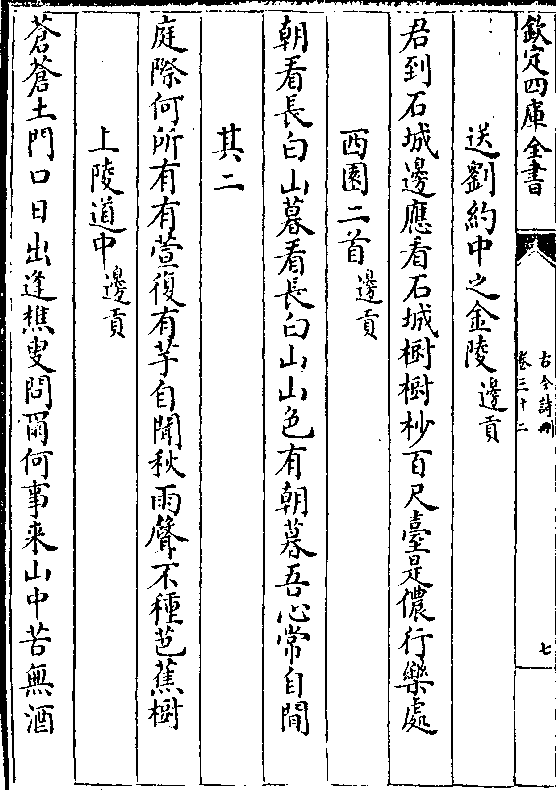 欽定四庫全書
古今詩刪
卷三十二
七
送劉約中之金陵 邊貢
君到石城邊應看石城樹樹杪百尺臺是儂行樂處
西園二首 邊貢
朝看長白山暮看長白山山色有朝暮吾心常自閒
其二
庭際何所有有萱復有芋自聞秋雨聲不種芭蕉樹
上陵道中 邊貢
蒼蒼土門口日出逢樵叟問爾何事来山中苦無酒